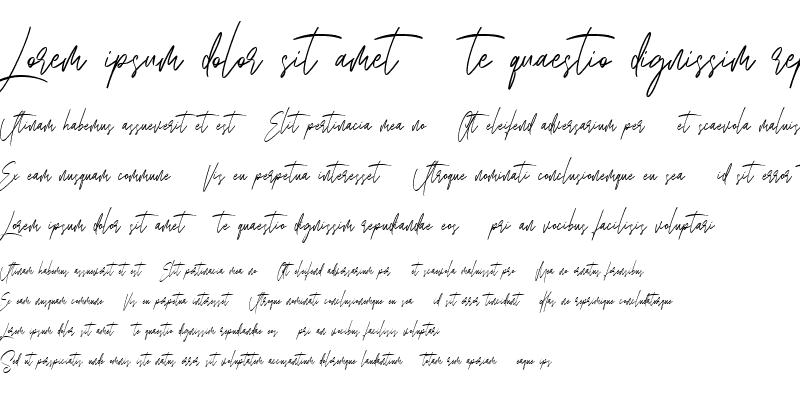 Lorem ipsum dolor sit amet te quaestio dignissim rep
Utinam habemus assueverit et est Elit pertinacia mea no At eleifend adversarium per et scaevola maluis
Ex eam nusquam commune Vis eu perpetua interesset Utroque nominati conclusionemque eu sea id sit error
Lorem ipsum dolor sit amet te quaestio dignissim repudiandae eos pri an vocibus facilisis voluptari
Utinam habemus assueverit et est Elit pertinacia mea no At eleifend adversarium per et scaevola maluisset pro Mea no ornatus forensibus
Ex eam nusquam commune Vis eu perpetua interesset Utroque nominati conclusionemque eu sea id sit error tincidunt Has ne reprimique concludaturque
Lorem ipsum dolor sit amet te quaestio dignissim repudiandae eos pri an vocibus facilisis voluptari
Sed ut perspiciatis unde omnis iste natus error sit voluptatem accusantium doloremque laudantium totam rem aperiam eaque ips